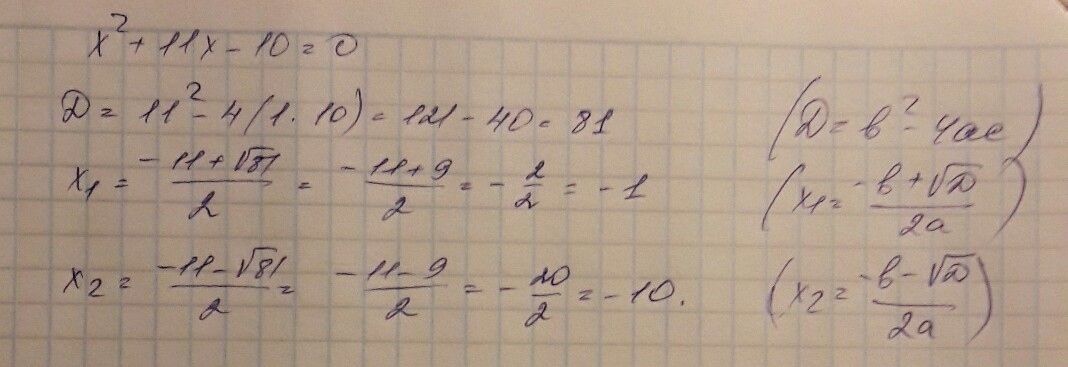 x² + 11x - 10 = 0
D = 11² - 4(1·10) = 121 - 40 = 81
(D = b² - 4ac)
x₁ = (-11+√81)/2 = (-11+9)/2 = -2/2 = -1
(x₁ = (-b+√D)/2a)
x₂ = (-11-√81)/2 = (-11-9)/2 = -20/2 = -10.
(x₂ = (-b-√D)/2a)